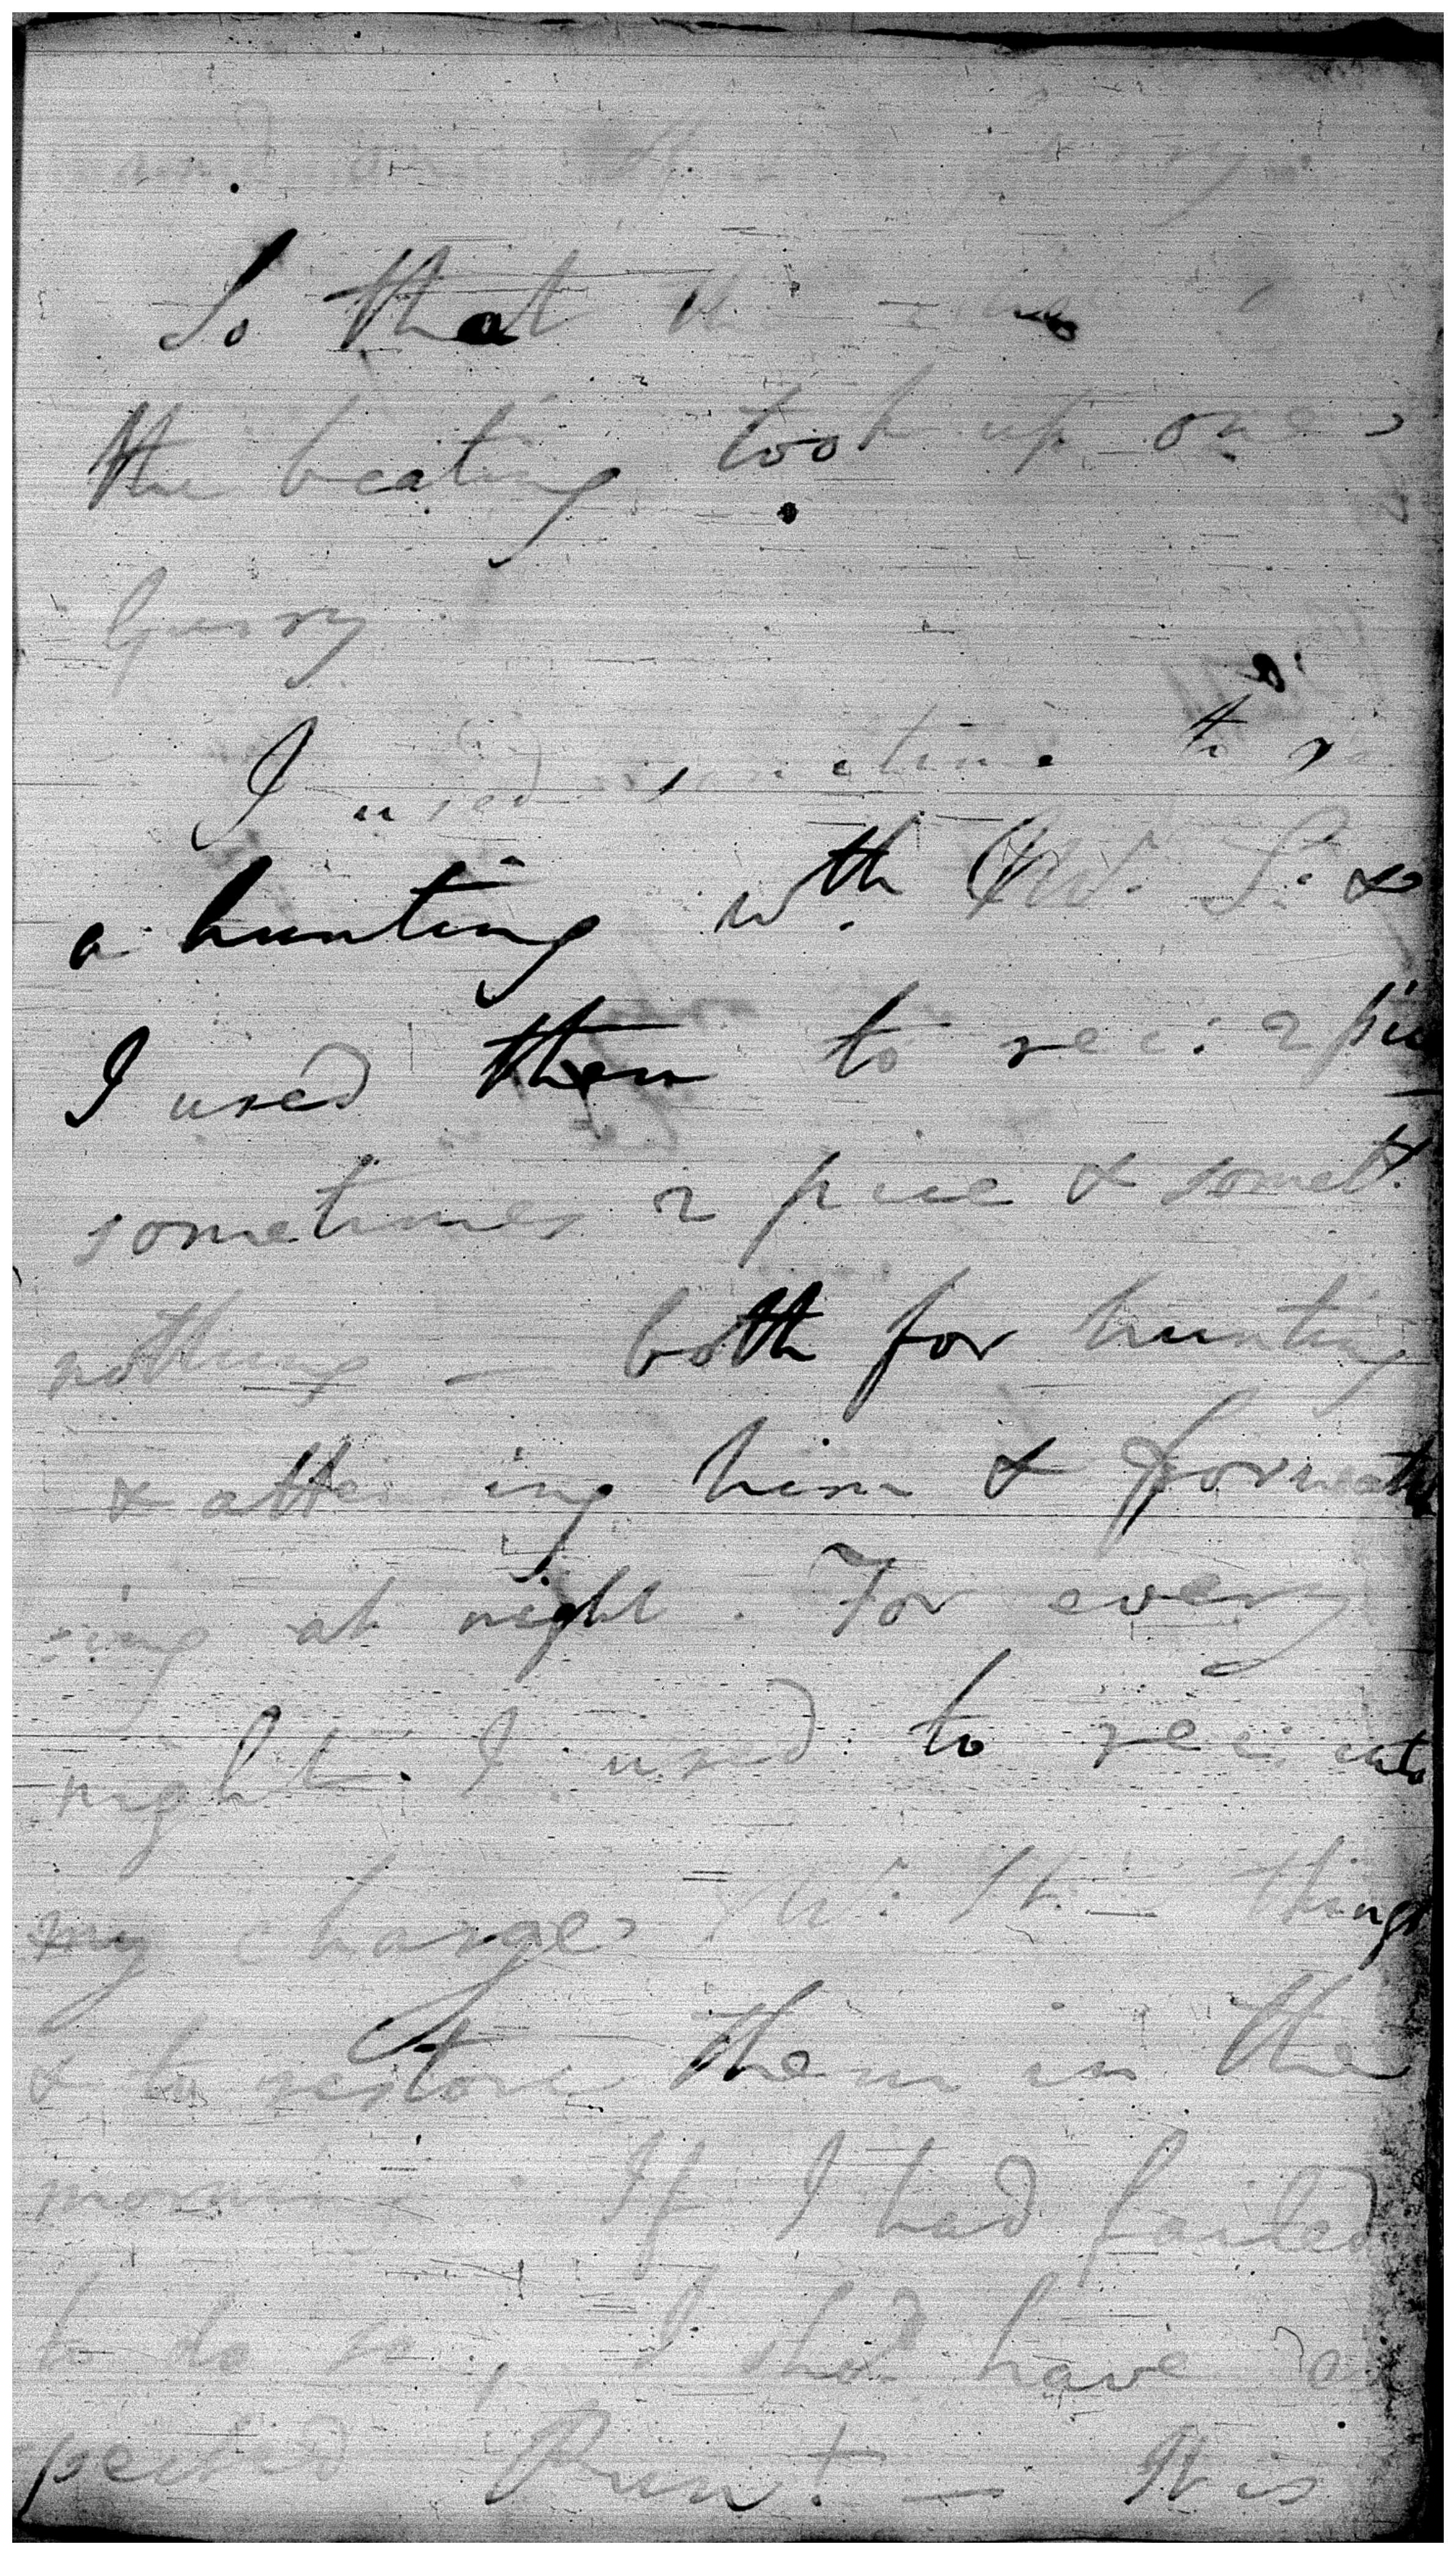 So that
the beating took up one
Gurry
I used sometimes to
a hunting wth Mr. S: &
I used then to rec: 2 pice
sometimes 2 pice & somet:
nothing — both for hunting
& attending him & for
at night. For every
night I used to rec: into
my charge Mr. St: — things
& to restore them in the
morning. If I had failed
to do so, I shd. have ex
pected Pun! — It is